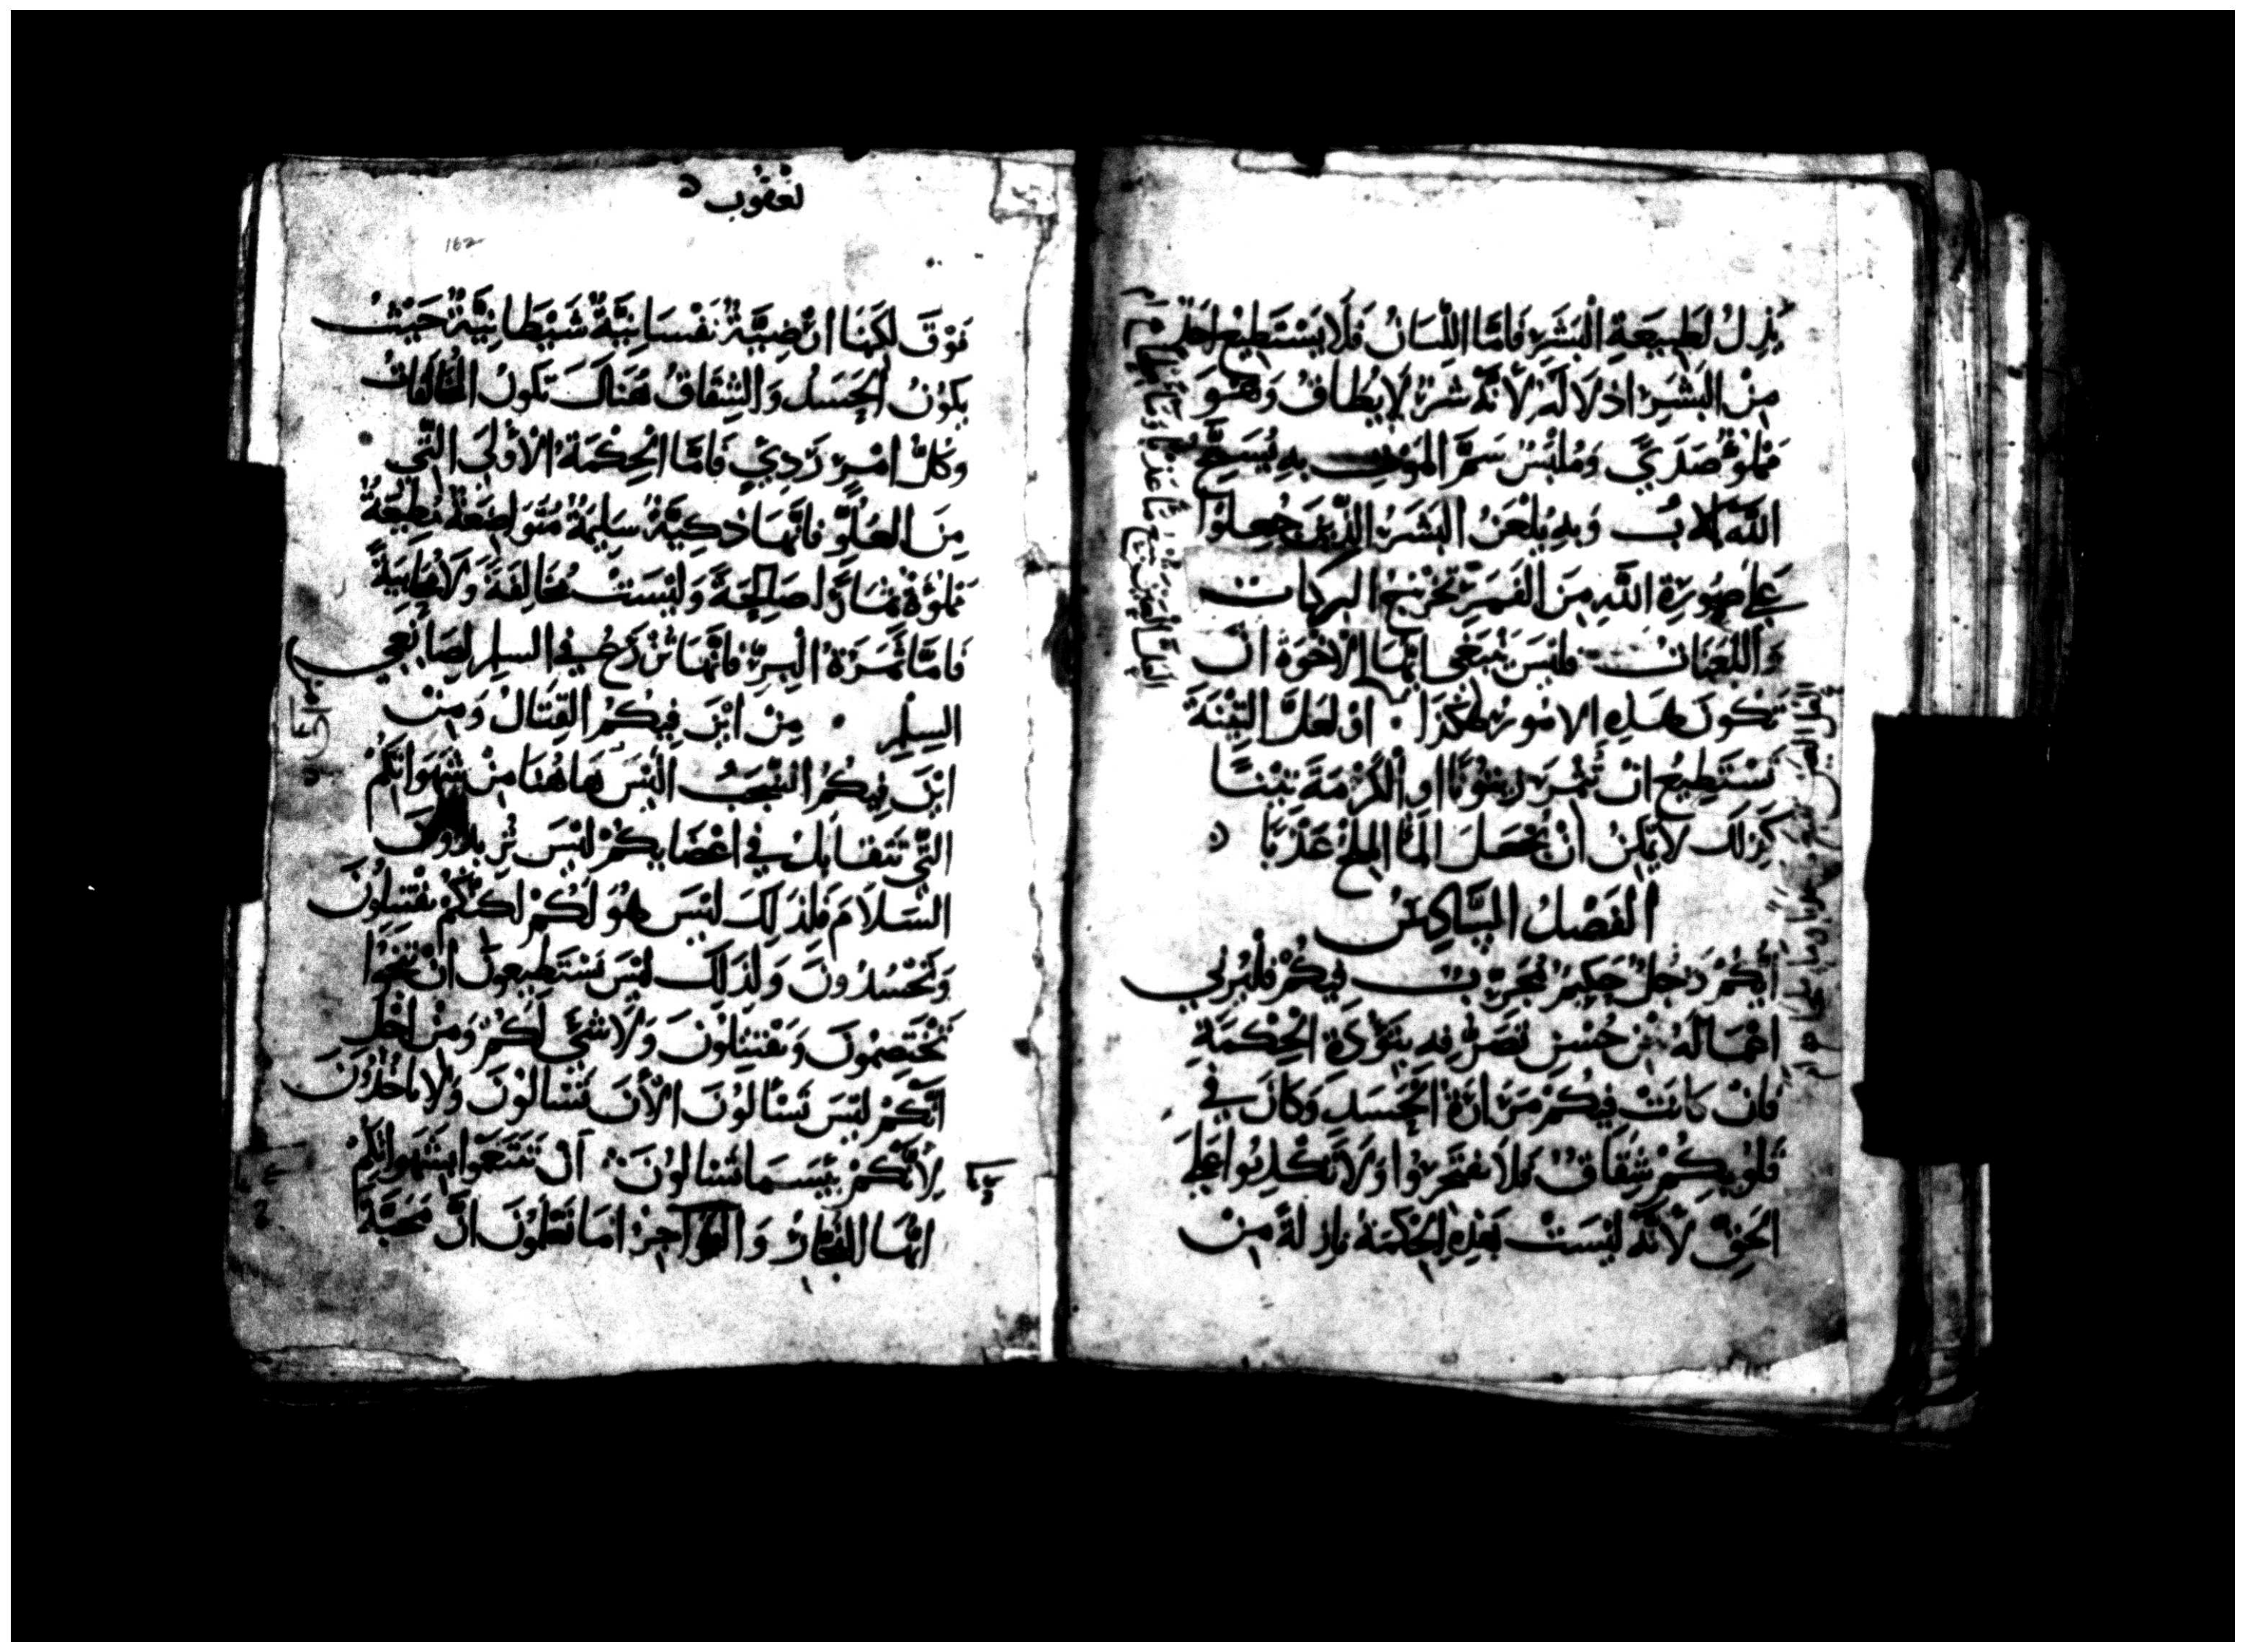 يُذِلُ لطَبِيعَةِ البَشَرِ فَامَّا اللِّسَانُ فَلَا يَسْتَطِيعُ احَدٌ
مِنَ البَشَرِ اذلَالَهُ لأنَّهُ شَرٌ لَا يُطَاقُ وَهُوَ
مَملوٌ صَدَيً وَمُلبَسٌ سَمَّ المَوتِ بهِ نُسَبِّحُ
اللهَ الابَ وَبهِ نَلْعَنُ البَشَرَ الَّذِينَ جُعِلُوا
عَلَى صُورَةِ اللَّهِ مِنَ الفَمِ تَخرُجُ البركات
وَاللَّعَنَاتُ فليسَ يَنبَغي ايُّهَا الاخوَةُ ان
تَكُونَ هَذِهِ الامُورُ هَكَذَا ان لَعَلَّ التِّينَةَ
تَسْتَطِيعُ انْ تُثمِرَ زيتُونًا او الكَرْمَةَ تِيْنًا
كَذلكَ لَا يُمكِنُ انْ تَجعَلَ المَا المِلحَ عَذْبًا
الفَصْلُ السَّادِسُ
ايُّكُمْ رَجُلٌ حَكِيمٌ مُجَرِّبٌ فِيكُمْ فَلْيُرِي
اعْمَالَهُ مِن حُسنِ تَصَرُّفِهِ بتَؤدَةِ الحِكمَةِ
فَانْ كَانَتْ فِيكُمْ مَرَارَةُ الحَسَدِ وَكَانَ فِي
قُلُوبِكُمْ شِقَاقٌ فَلَا تَفتَخِرُوا وَلَا تَكْذِبُوا عَلَى
الحَقِّ لأنَّهُ لَيْسَتْ هَذِهِ الحِكمَةُ نازلةً مِنْ
يعقوب
162
فَوْقَ لكِنَّهَا ارْضِيَّةٌ نَفْسَانِيَّةٌ شَيْطَانِيَّةٌ حَيْثُ
يَكُوْنُ الحَسَدُ وَالشِقَاقُ هُنَاكَ تَكُونُ المُخَالَفَاتُ
وَكُلُّ امْرٍ رَدِيٍّ فَامَّا الحِكْمَةُ الأُولَى الَّتِي
مِنَ العُلُوِّ فانَّهَا ذَكِيَّةٌ سَلِيمَةٌ مُتَوَاضِعَةٌ مُطِيْعَةٌ
مَملوَّةٌ ثِمَارًا صَالِحَةً وَلَيْسَتْ مُخَالِفَةً وَلَا مُحَابِيَةً
فَامَّا ثَمَرَةُ البِرِّ فانَّهَا تُزرَعُ في السلمِ لصَانِعي
السِلمِ مِنْ ايْنَ فِيكُمُ القِتَالُ وَمِنْ
ايْنَ فِيكُمُ الشَّجَبُ الَيْسَ هَاهُنَا مِنْ شَهَوَاتِكُمْ
التِّي تَتَقَابَلُ في اعْضَايِكُمْ لَيْسَ تُرِيدُونَ
السَّلَامَ فَلِذَلِكَ لَيْسَ هُوَ لَكُمْ لَكِنَّكُمْ تَقتُلُونَ
وَتَحْسُدُونَ وَلِذَلِكَ لَيْسَ تَسْتَطِيعُونَ انْ تَنجَوُا
تَختَصِمُونَ وَتَقْتَتِلُونَ وَلَا شَيْ لَكُمْ وَمِنْ اجْلِ
انَّكُمْ لَيْسَ تَسْألُونَ الأنَ تَسْالُونَ وَلَا تاخُذُونَ
لأنَّكُمْ بئسَمَا تَسالُونَ انْ تَتَنَعَّمُوا بشَهَوَاتِكُمْ
ايُّهَا الفُجَّارُ وَالفَوَاجِرُ امَا تَعْلَمُونَ انَّ مَحَبَّةَ